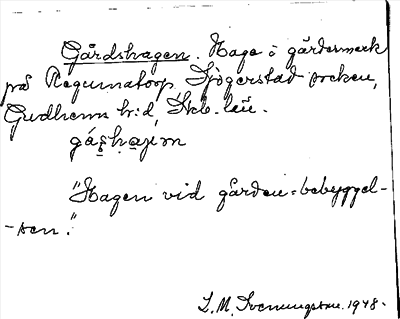 Gårdshagen. Hage å gärdesmark
på Regumatorp Sjogerstad socken,
Gudhems h:d, Skb. län.
gá̱s̱ha̱jen
"Hagen vid gården = bebyggel-
-sen."
L. M. Svenungsson. 1948.